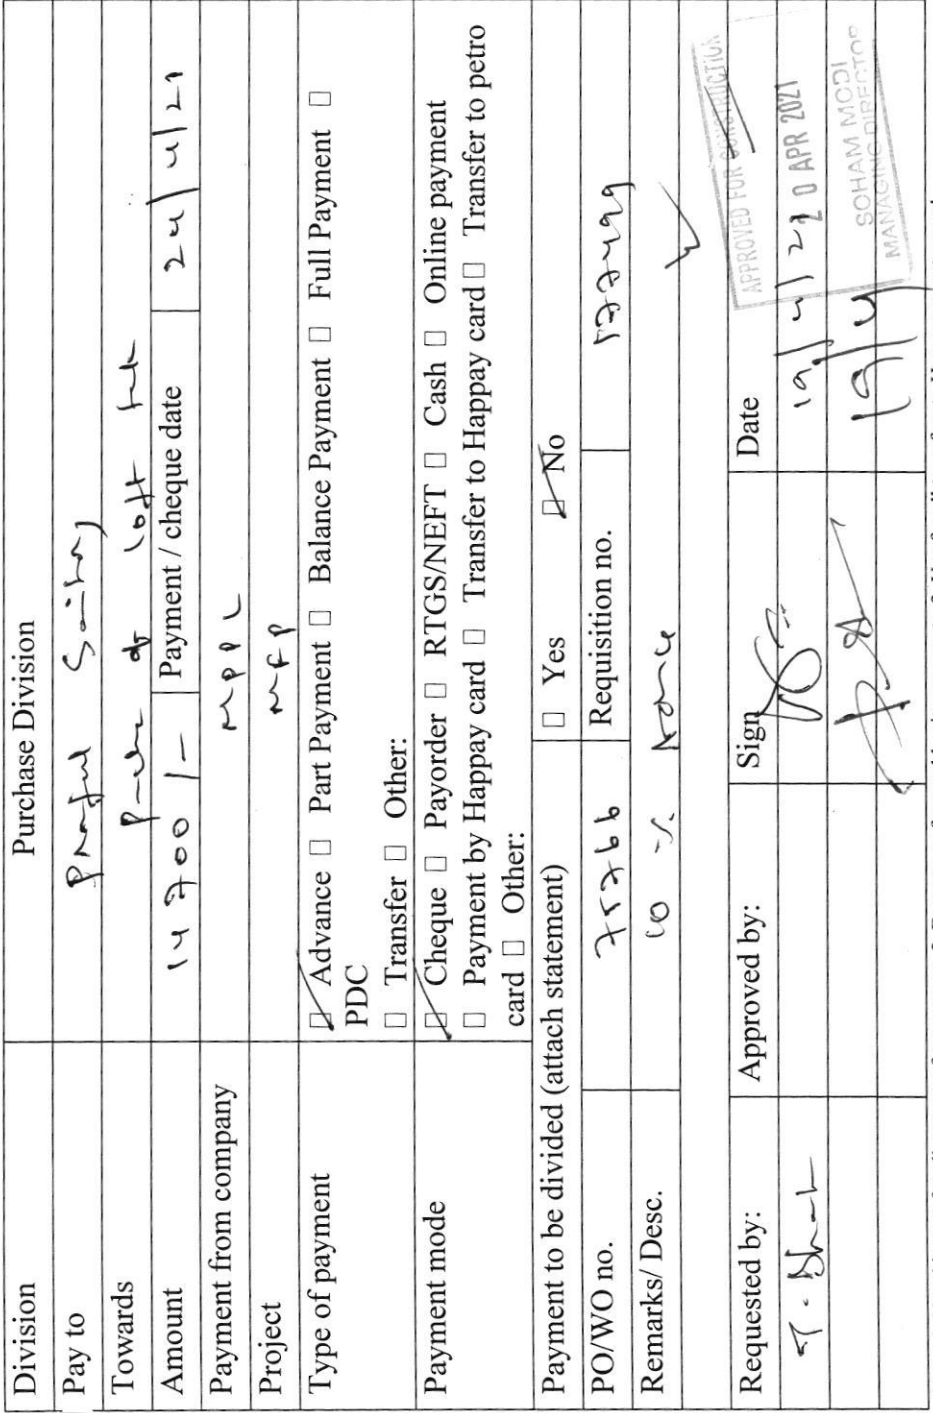 Division Purchase Division
Pay to Praful Sanitary
Towards of loft tank
Amount 14700/- Payment / cheque date 24/4/21
Payment from company MPPL
Project MFP
Type of payment ☑ Advance ☐ Part Payment ☐ Balance Payment ☐ Full Payment ☐
PDC
☐ Transfer ☐ Other:
Payment mode ☑ Cheque ☐ Payorder ☐ RTGS/NEFT ☐ Cash ☐ Online payment
☐ Payment by Happay card ☐ Transfer to Happay card ☐ Transfer to petro
card ☐ Other:
Payment to be divided (attach statement) ☐ Yes ☑ No
PO/WO no. 75766 Requisition no. 177499
Remarks/ Desc.
APPROVED FOR CONSTRUCTION
Requested by: Approved by: Sign Date
19/4/21
20 APR 2021
19/4
SOHAM MODI
MANAGING DIRECTOR